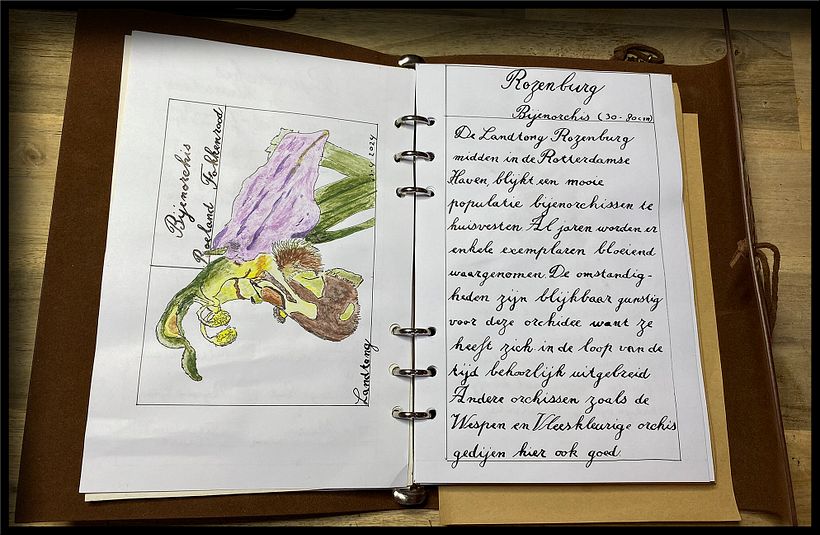 Bijenorchis
Roeland Fokkenrood
2024
Landtong
Rozenburg
Bijenorchis (30-90cm)
De Landtong Rozenburg
midden in de Rotterdamse
Haven, blijkt een mooie
populatie bijenorchissen te
huisvesten. Al jaren worden er
enkele exemplaren bloeiend
waargenomen. De omstandig-
heden zijn blijkbaar gunstig
voor deze orchidee want ze
heeft zich in de loop van de
tijd behoorlijk uitgebreid
Andere orchissen zoals de
Wespen en Vleeskleurige orchis
gedijen hier ook goed.